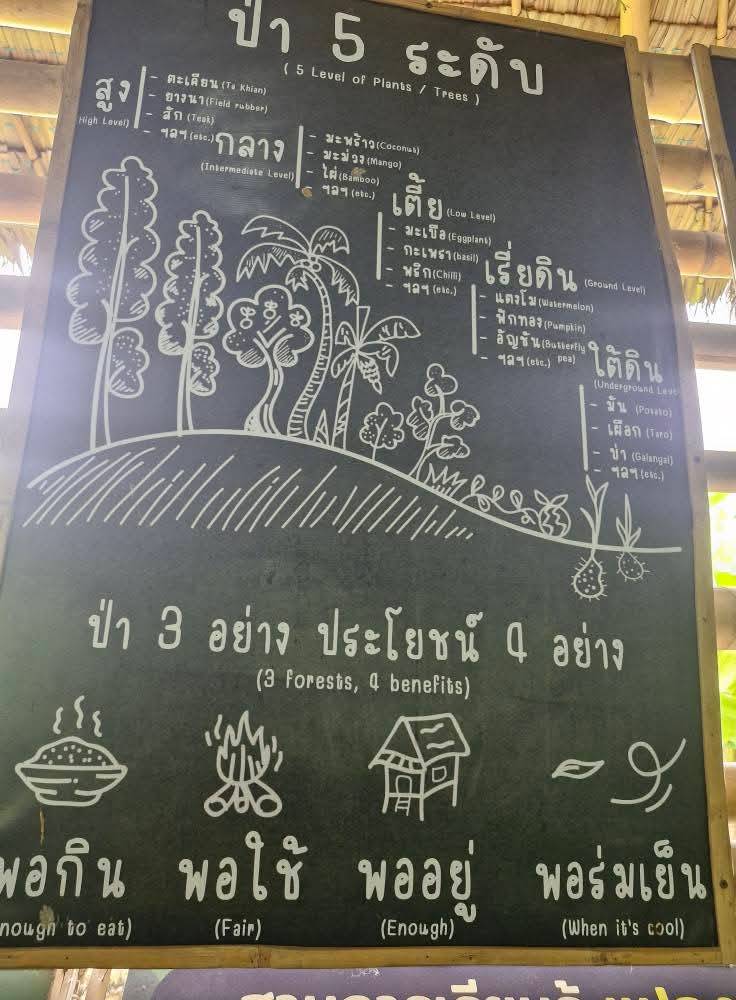 ป่า 5 ระดับ
( 5 Level of Plants / Trees )
สูง
High Level)
- ตะเคียน (Ta Khian)
- ยางนา (Field rubber)
- สัก (Teak)
- ฯลฯ (etc.)
กลาง
(Intermediate Level)
- มะพร้าว (Coconut)
- มะม่วง (Mango)
- ไผ่ (Bamboo)
- ฯลฯ (etc.)
เตี้ย (Low Level)
- มะเขือ (Eggplant)
- กะเพรา (basil)
- พริก (Chilli)
- ฯลฯ (etc.)
เรี่ยดิน (Ground Level)
- แตงโม (Watermelon)
- ฟักทอง (Pumpkin)
- อัญชัน (Butterfly pea)
- ฯลฯ (etc.)
ใต้ดิน
(Underground Level
- มัน (Potato)
- เผือก (Taro)
- ข่า (Galangal)
- ฯลฯ (etc.)
ป่า 3 อย่าง ประโยชน์ 4 อย่าง
(3 forests, 4 benefits)
พอกิน
nough to eat)
พอใช้
(Fair)
พออยู่
(Enough)
พอร่มเย็น
(When it's cool)